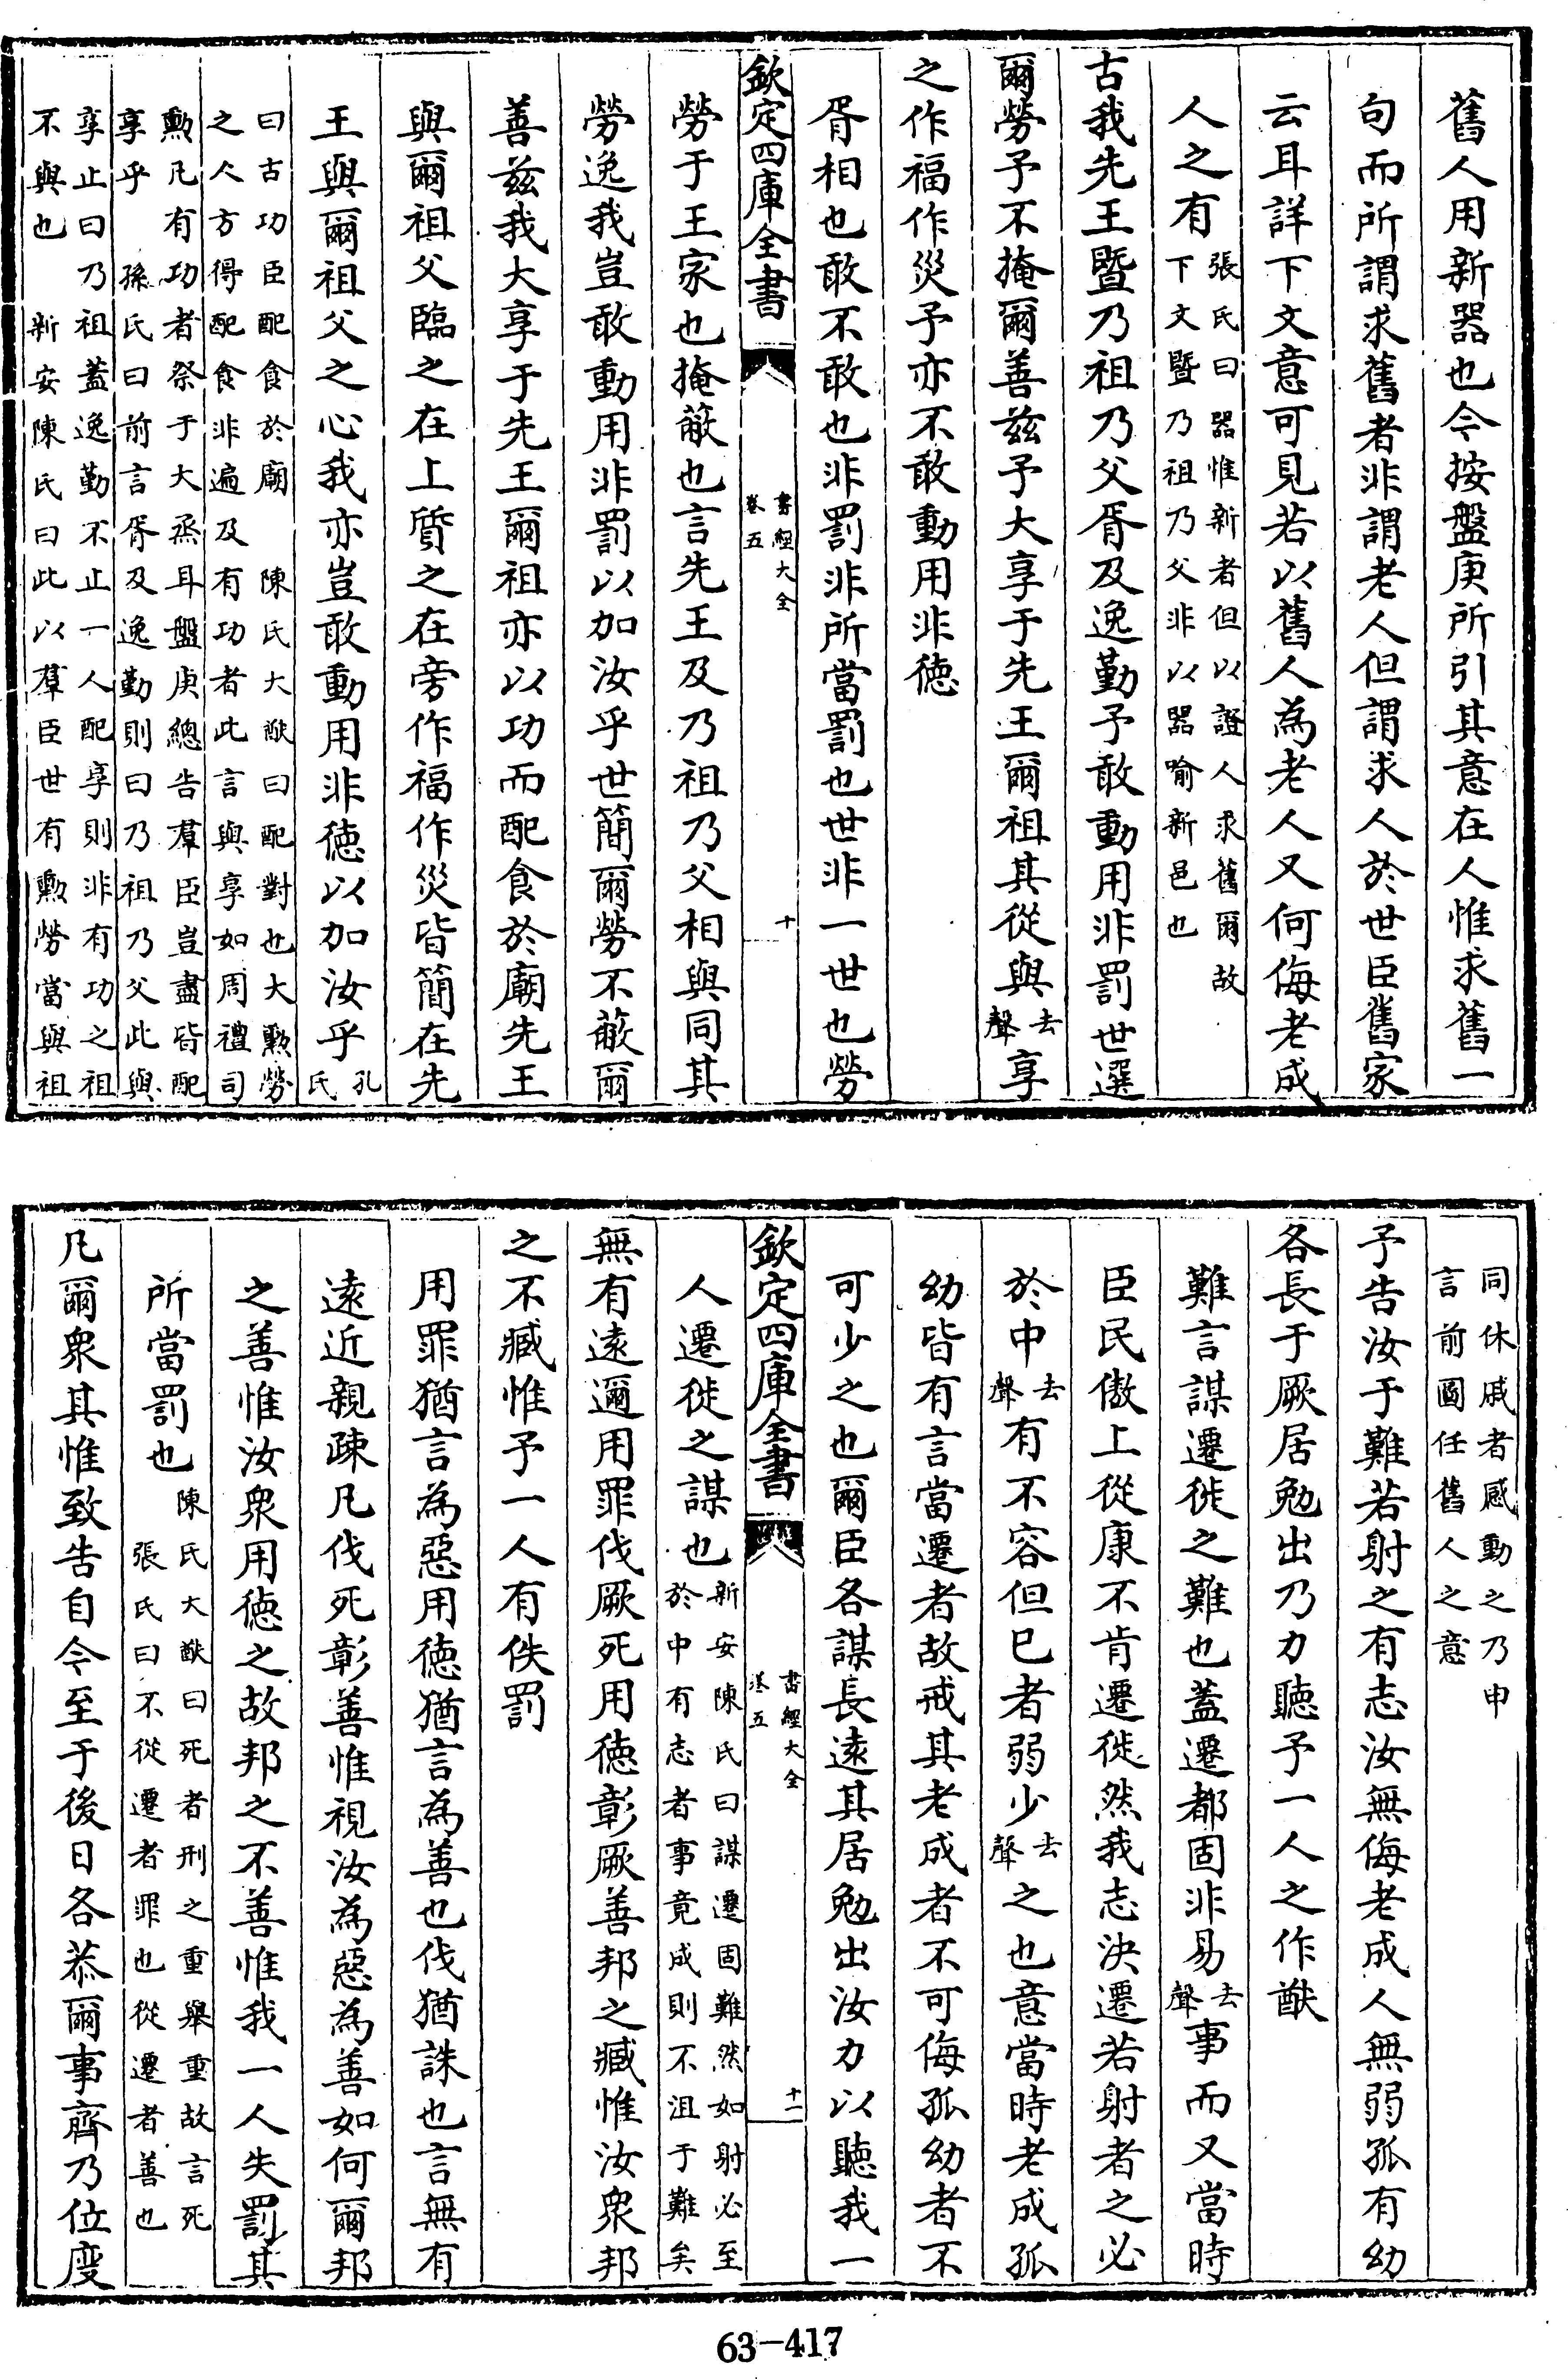 舊人用新器也今按盤庚所引其意在人惟求舊一
句而所謂求舊者非謂老人但謂求人於世臣舊家
云耳詳下文意可見若以舊人為老人又何侮老成
人之有張氏曰器惟新者但以證人求舊爾故下文暨乃祖乃父非以器喻新邑也
古我先王暨乃祖乃父胥及逸勤予敢動用非罰世選
爾勞予不掩爾善兹予大享于先王爾祖其從與去聲享
之作福作災予亦不敢動用非徳
胥相也敢不敢也非罰非所當罰也世非一世也勞
欽定四庫全書 書經大全卷五 十
勞于王家也掩蔽也言先王及乃祖乃父相與同其
勞逸我豈敢動用非罰以加汝乎世簡爾勞不蔽爾
善兹我大享于先王爾祖亦以功而配食於廟先王
與爾祖父臨之在上質之在旁作福作災皆簡在先
王與爾祖父之心我亦豈敢動用非徳以加汝乎孔氏
曰古功臣配食於廟 陳氏大猷曰配對也大勲勞
之人方得配食非遍及有功者此言與享如周禮司
勲凡有功者祭于大烝耳盤庚總告羣臣豈盡皆配
享乎 孫氏曰前言胥及逸勤則曰乃祖乃父此與
享止曰乃祖蓋逸勤不止一人配享則非有功之祖
不與也 新安陳氏曰此以羣臣世有勲勞當與祖
同休戚者感動之乃申
言前圖任舊人之意
予告汝于難若射之有志汝無侮老成人無弱孤有幼
各長于厥居勉出乃力聽予一人之作猷
難言謀遷徙之難也蓋遷都固非易去聲事而又當時
臣民傲上從康不肯遷徙然我志決遷若射者之必
於中去聲有不容但已者弱少去聲之也意當時老成孤
幼皆有言當遷者故戒其老成者不可侮孤幼者不
可少之也爾臣各謀長遠其居勉出汝力以聽我一
欽定四庫全書 書經大全卷五 十一
人遷徙之謀也新安陳氏曰謀遷固難然如射必至於中有志者事竟成則不沮于難矣
無有遠邇用罪伐厥死用徳彰厥善邦之臧惟汝衆邦
之不臧惟予一人有佚罰
用罪猶言為惡用徳猶言為善也伐猶誅也言無有
遠近親疎凡伐死彰善惟視汝為惡為善如何爾邦
之善惟汝衆用徳之故邦之不善惟我一人失罰其
所當罰也陳氏大猷曰死者刑之重舉重故言死 張氏曰不從遷者罪也從遷者善也
凡爾衆其惟致告自今至于後日各恭爾事齊乃位度
63-417